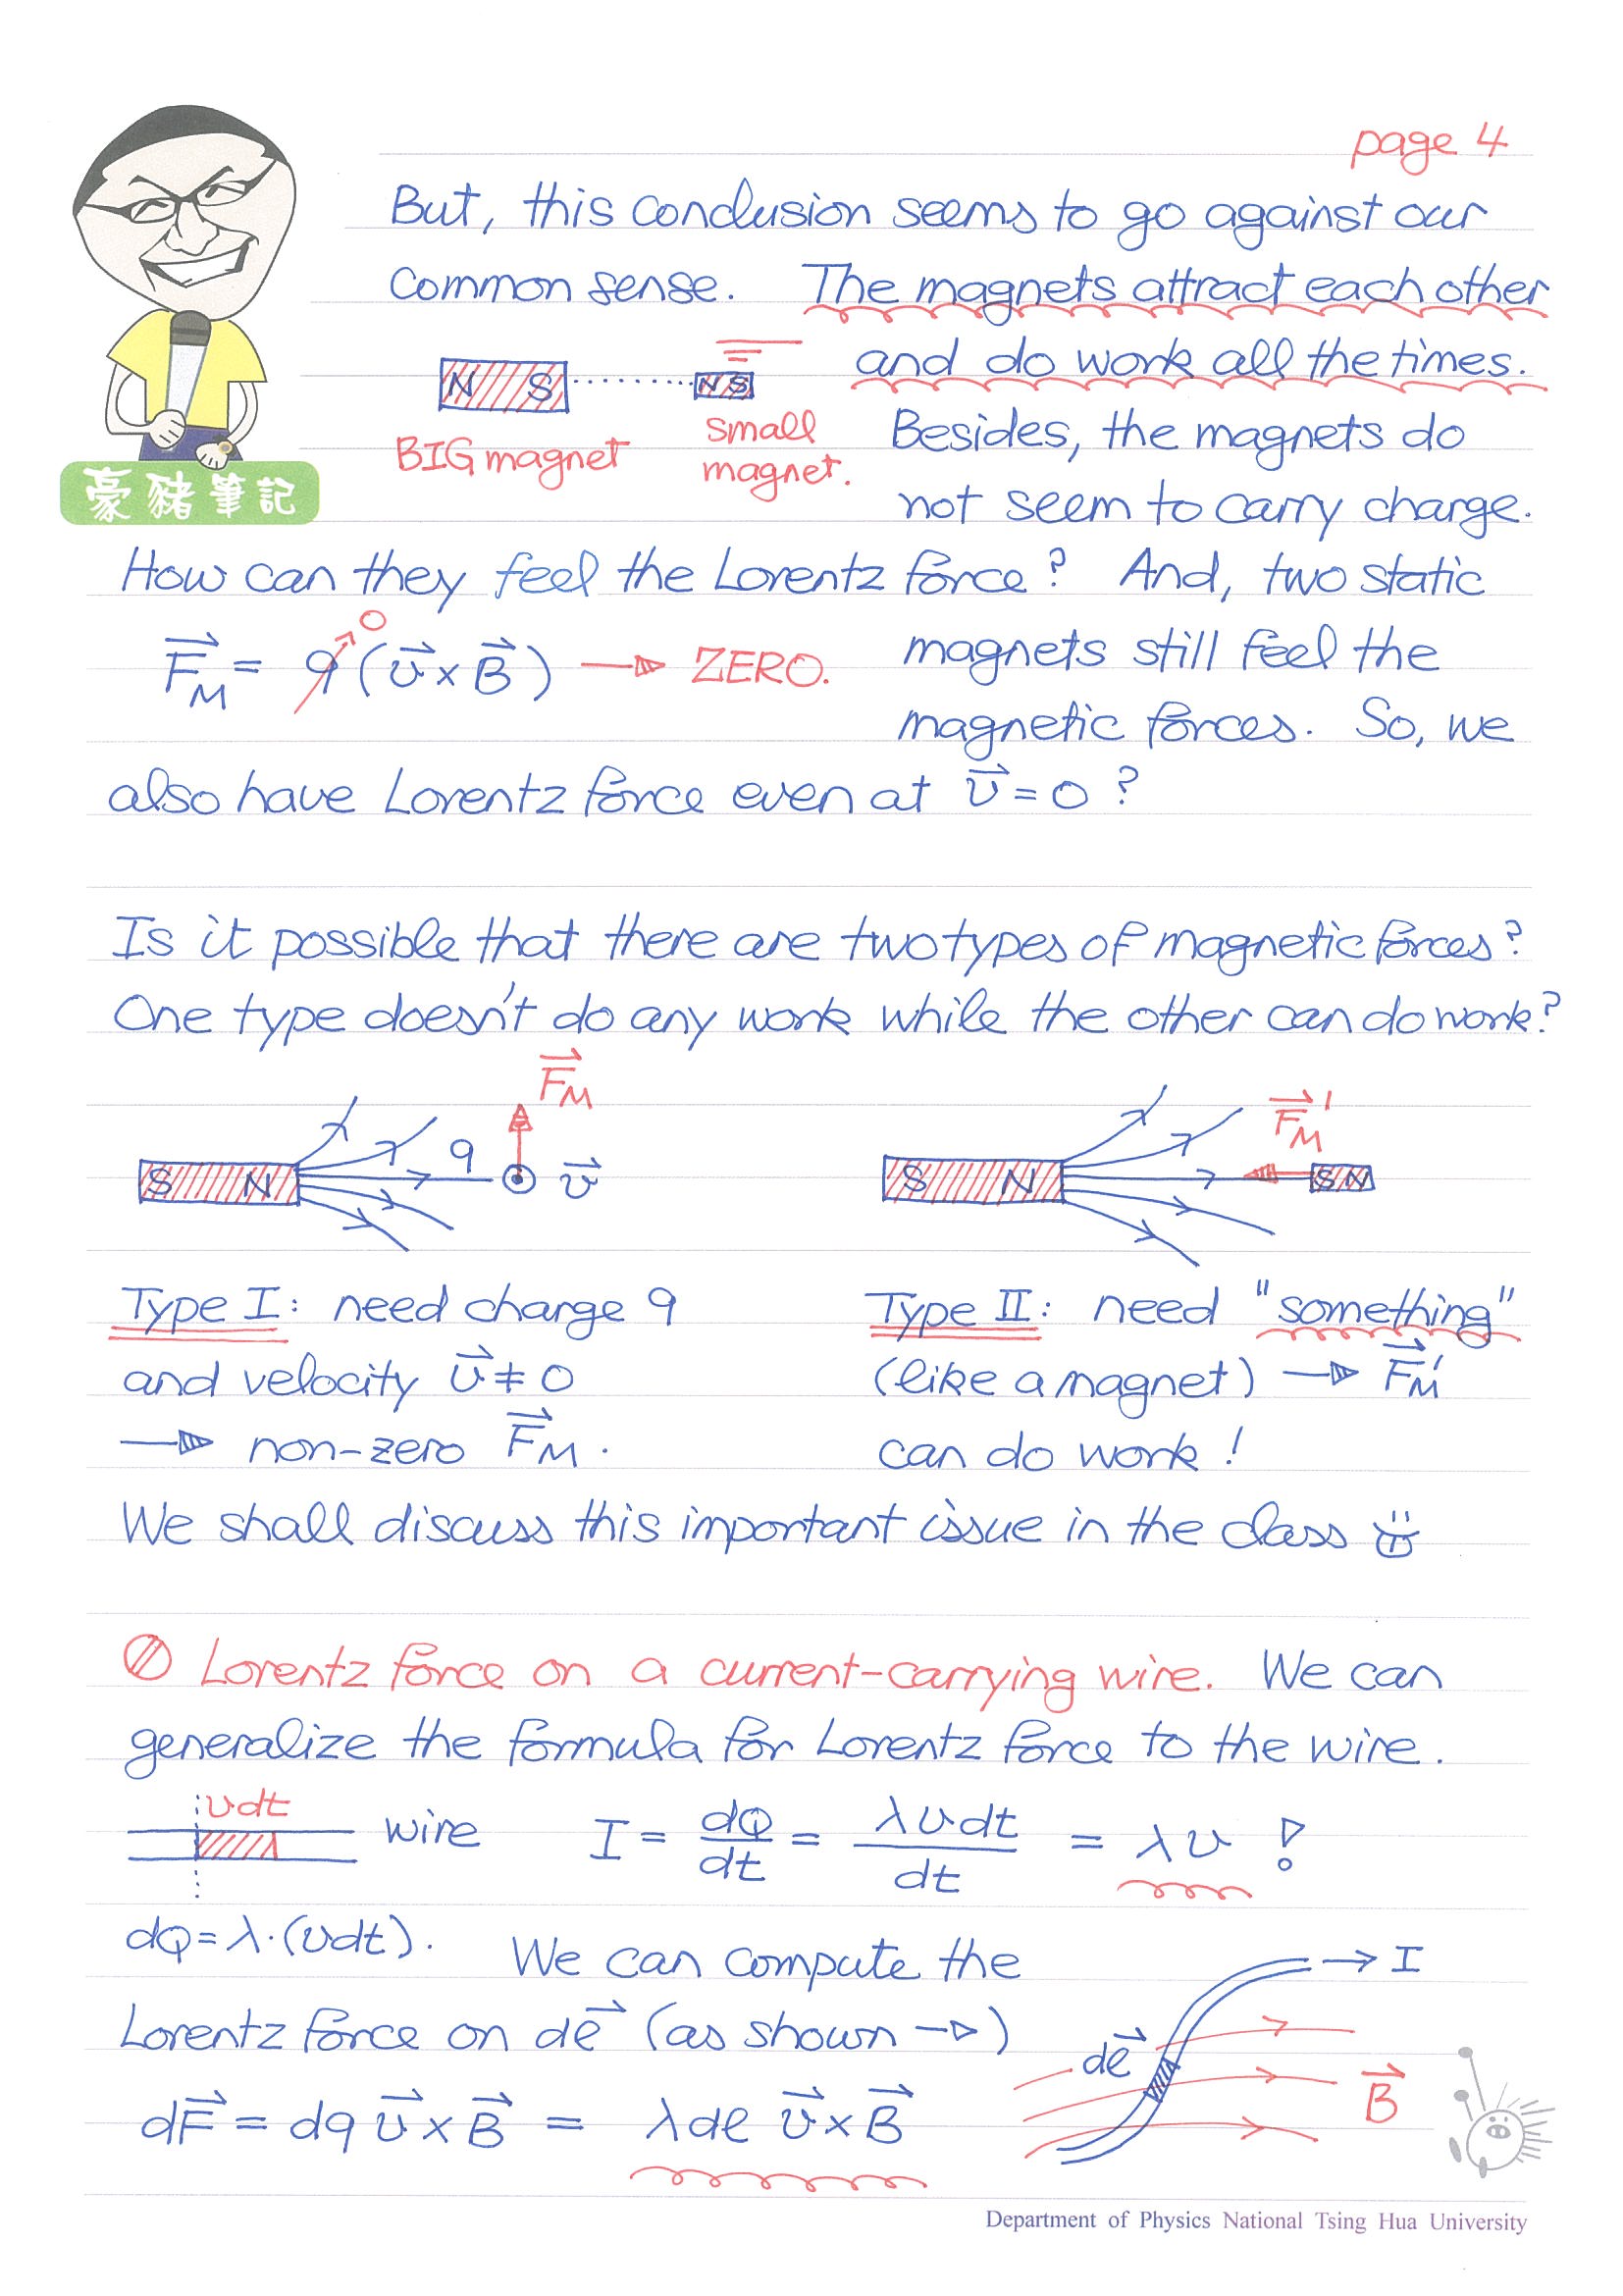 page 4
But, this conclusion seems to go against our
common sense. The magnets attract each other
N S N S and do work all the times.
BIG magnet small magnet. Besides, the magnets do
not seem to carry charge.
豪豬筆記
How can they feel the Lorentz force? And, two static
F⃗_M = q (v⃗ × B⃗) → ZERO. magnets still feel the
0
magnetic forces. So, we
also have Lorentz force even at v⃗ = 0 ?
Is it possible that there are two types of magnetic forces?
One type doesn't do any work while the other can do work?
F⃗_M
S N q v⃗
F⃗_M'
S N S N
Type I: need charge q
and velocity v⃗ ≠ 0
→ non-zero F⃗_M.
Type II: need "something"
(like a magnet) → F⃗_M'
can do work!
We shall discuss this important issue in the class
Lorentz force on a current-carrying wire. We can
generalize the formula for Lorentz force to the wire.
vdt
wire I = dQ/dt = λvdt/dt = λv !
dQ = λ·(vdt). We can compute the
Lorentz force on dl⃗ (as shown →)
dF⃗ = dq v⃗ × B⃗ = λdl v⃗ × B⃗
I
dl⃗
B⃗
Department of Physics National Tsing Hua University